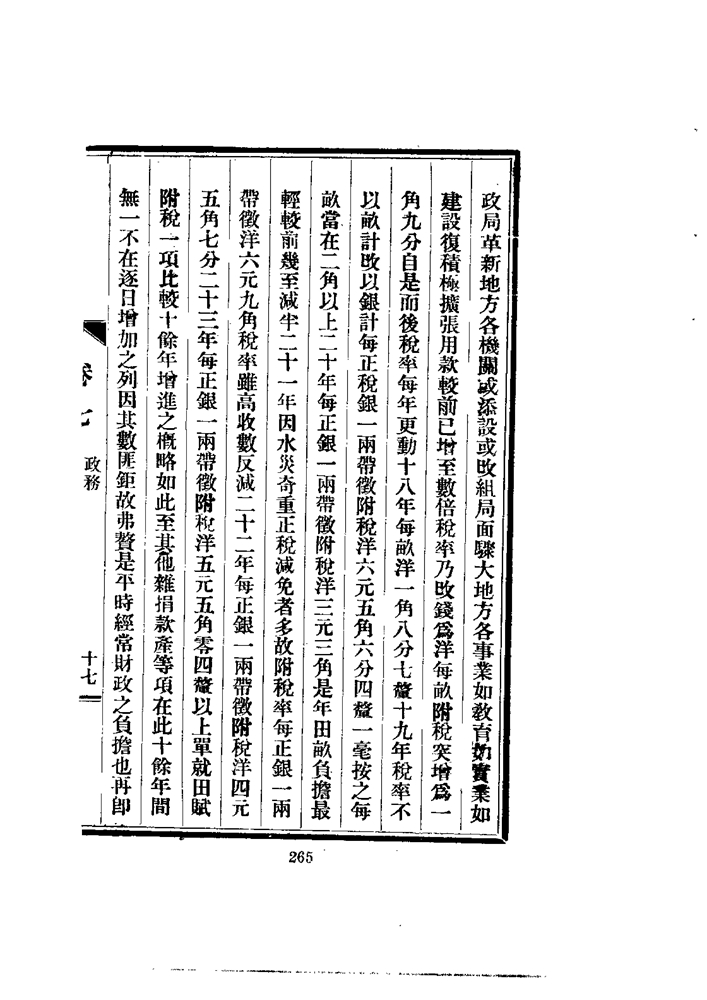 政局革新地方各機關或添設或改組局面驟大地方各事業如教育如實業如
建設復積極擴張用款較前已增至數倍稅率乃改錢爲洋每畝附稅突增爲一
角九分自是而後稅率每年更動十八年每畝洋一角八分七釐十九年稅率不
以畝計改以銀計每正稅銀一兩帶徵附稅洋六元五角六分四釐一毫按之每
畝當在二角以上二十年每正銀一兩帶徵附稅洋三元三角是年田畝負擔最
輕較前幾至減半二十一年因水災奇重正稅減免者多故附稅率每正銀一兩
帶徵洋六元九角稅率雖高收數反減二十二年每正銀一兩帶徵附稅洋四元
五角七分二十三年每正銀一兩帶徵附稅洋五元五角零四釐以上單就田賦
附稅一項比較十餘年增進之槪略如此至其他雜捐款產等項在此十餘年間
無一不在逐日增加之列因其數匪鉅故弗贅是平時經常財政之負擔也再卽
卷七 政務 十七
265